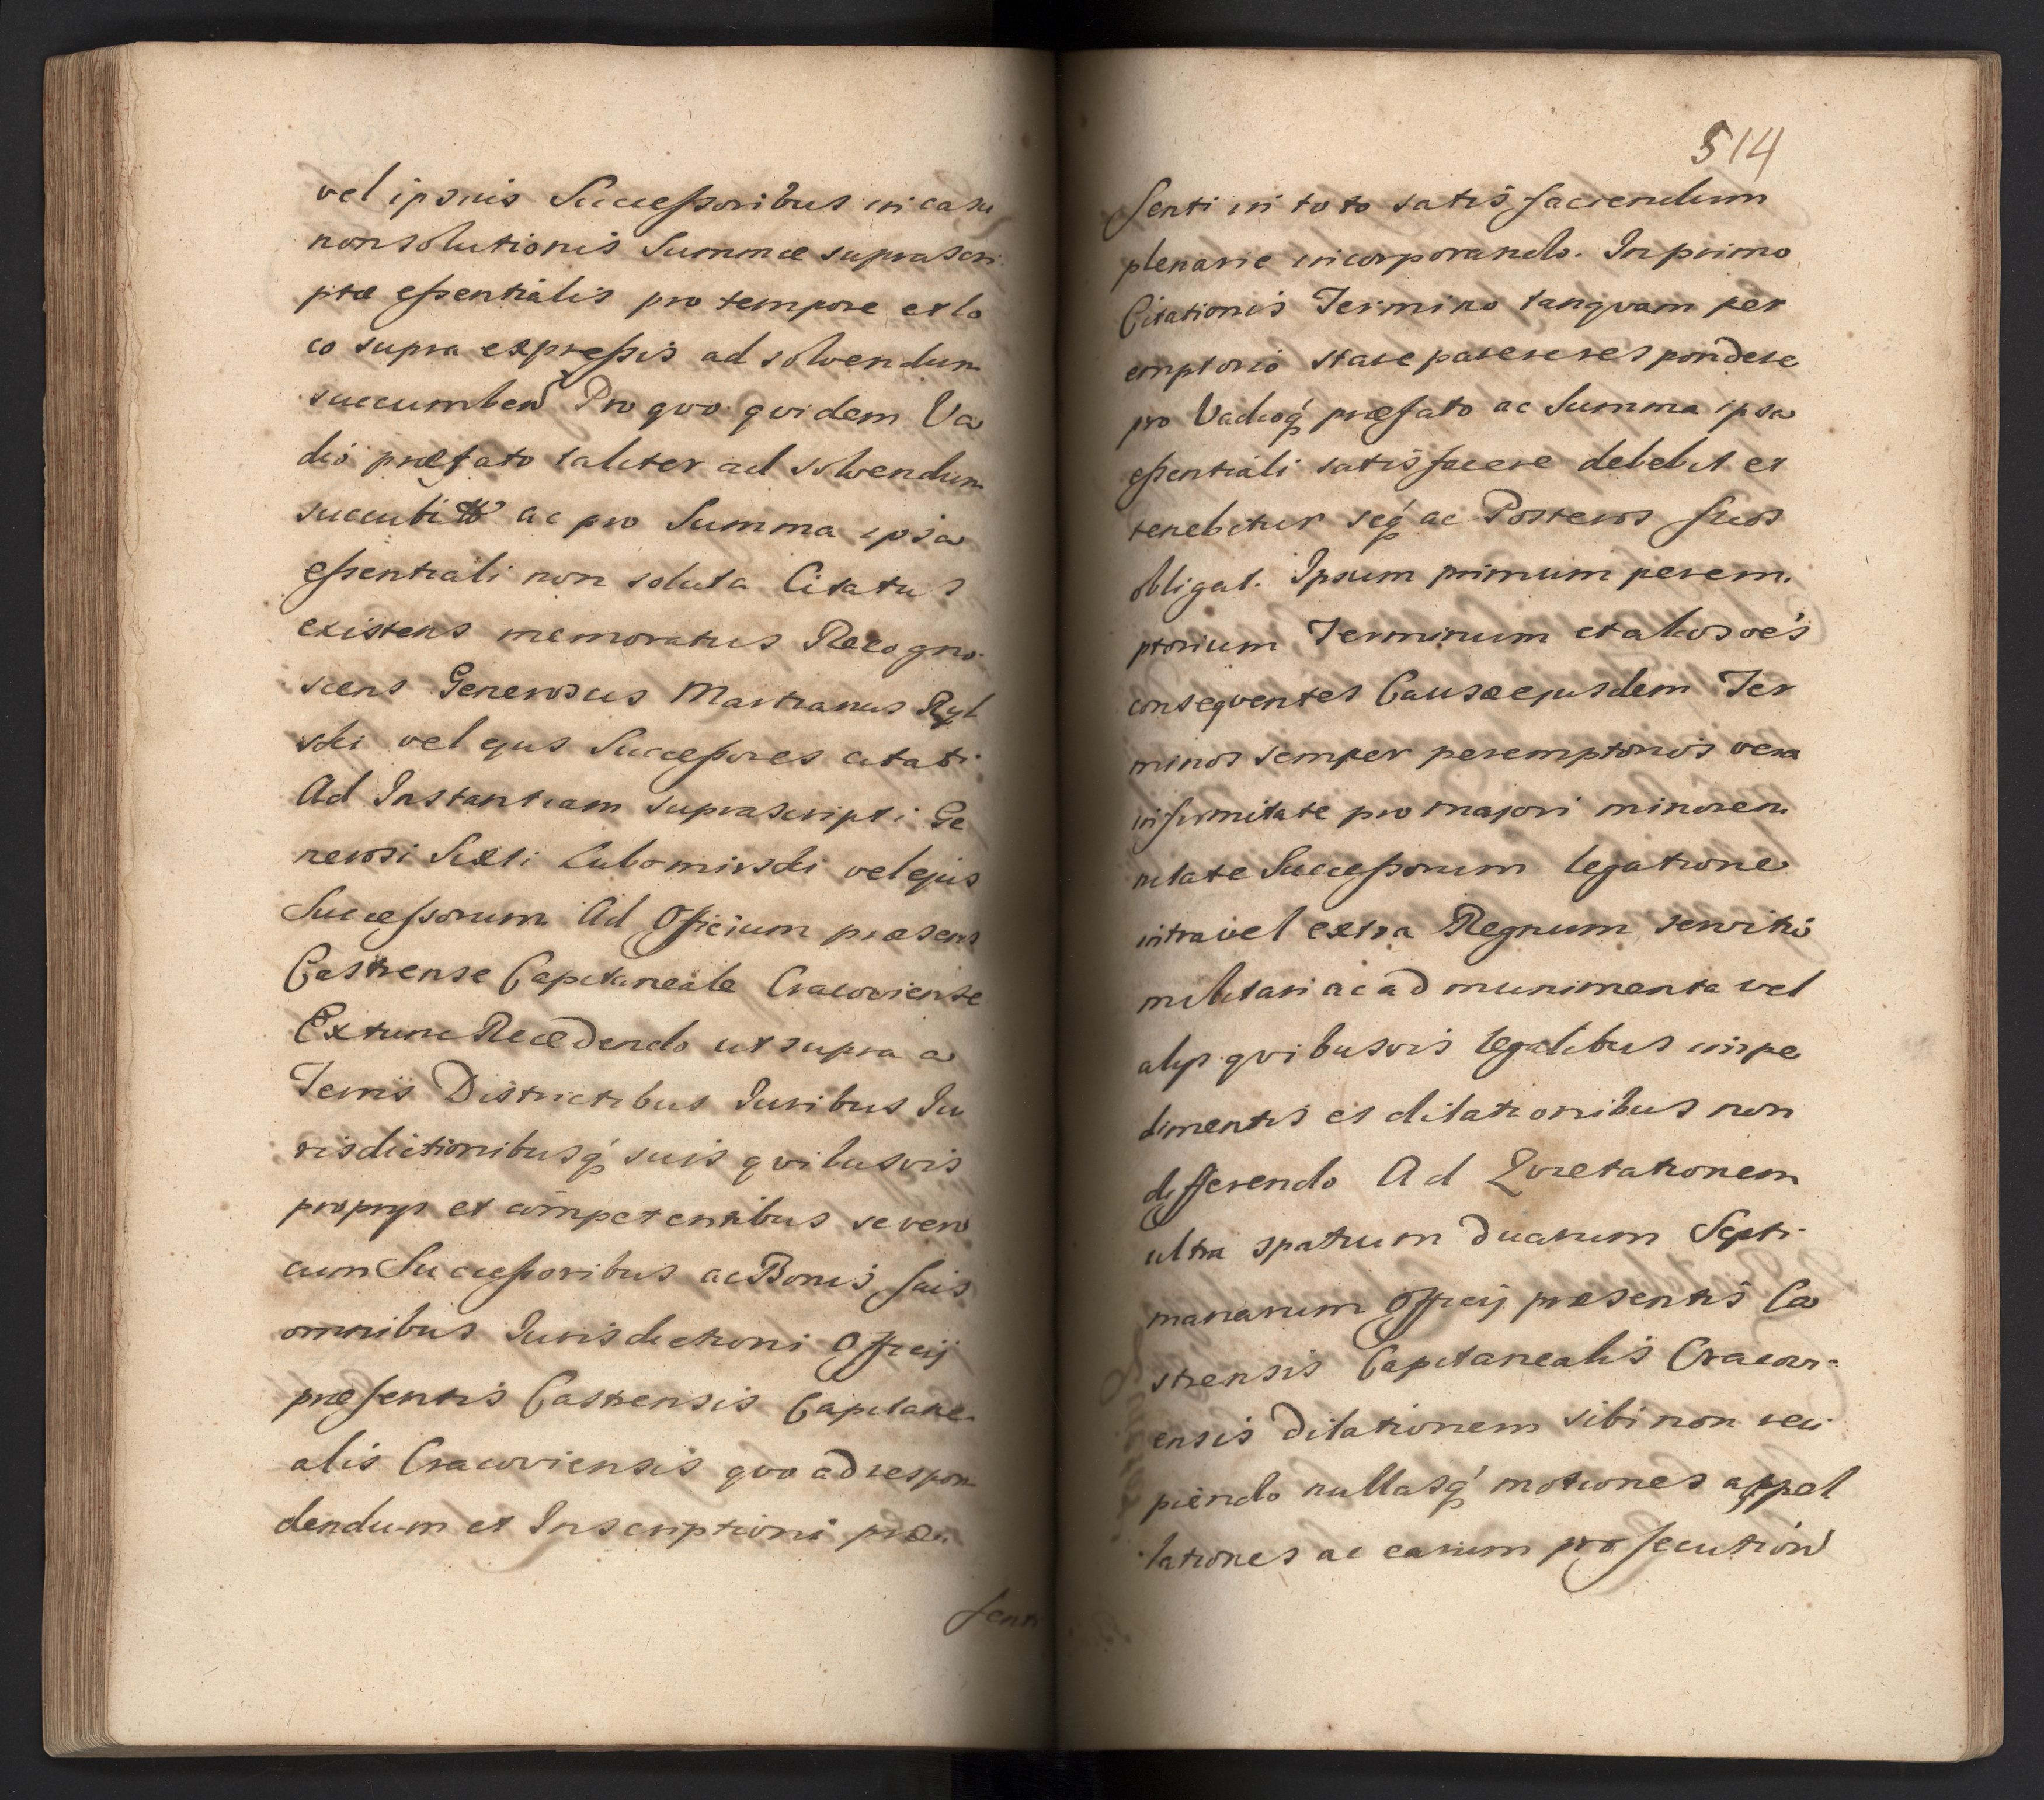 vel ipsius Successoribus in casu
non solutionis Summæ suprascri
ptæ essentialis pro tempore et lo
co supra expressis ad solvendum
succumben Pro quo quidem Va
dio præfato taliter ad solvendum
succubi ac pro Summa ipsa
essentiali non soluta Citatus
existens memoratus Recogno
scens Generosus Martianus Ryl
ski vel ejus Successores citati
Ad Instantiam suprascripti Ge
nerosi Lubomirski vel ejus
Successorum Ad Officium præsens
Castrense Capitaneale Cracoviense
Extunc Recedendo ut supra a
Terris Districtibus Juribus Ju
risdictionibusq suis quibusvis
proprijs et competentibus se vero
cum Successoribus ac Bonis suis
omnibus Jurisdictioni Officij
præsentis Castrensis Capitane
alis Cracoviensis quo ad respon
dendum et Inscriptioni præ
senti
514
senti in toto satis faciendum
plenarie incorporando. In primo
Citationis Termino tanquam per
emptorio stare parere respondere
pro Vadioq præfato ac Summa ipsa
essentiali satisfacere debebit et
tenebitur seq ac Posteros suos
obligat. Ipsum primum perem.
ptorium Terminum et alios oēs
consequentes Causæ ejusdem Ter
minos semper peremptorios vera
infirmitate pro majori minoren
nitate Successorum legatione
intra vel extra Regnum servitio
militari ac ad munimenta vel
alijs quibusvis legalibus impe
dimentis et dilationibus non
differendo Ad Quietationem
ultra spatium duarum Septi
manarum Officij præsentis Ca
strensis Capitanealis Cracovi
ensis dilationem sibi non reci
piendo nullasq motiones appel
lationes ac earum prosecution